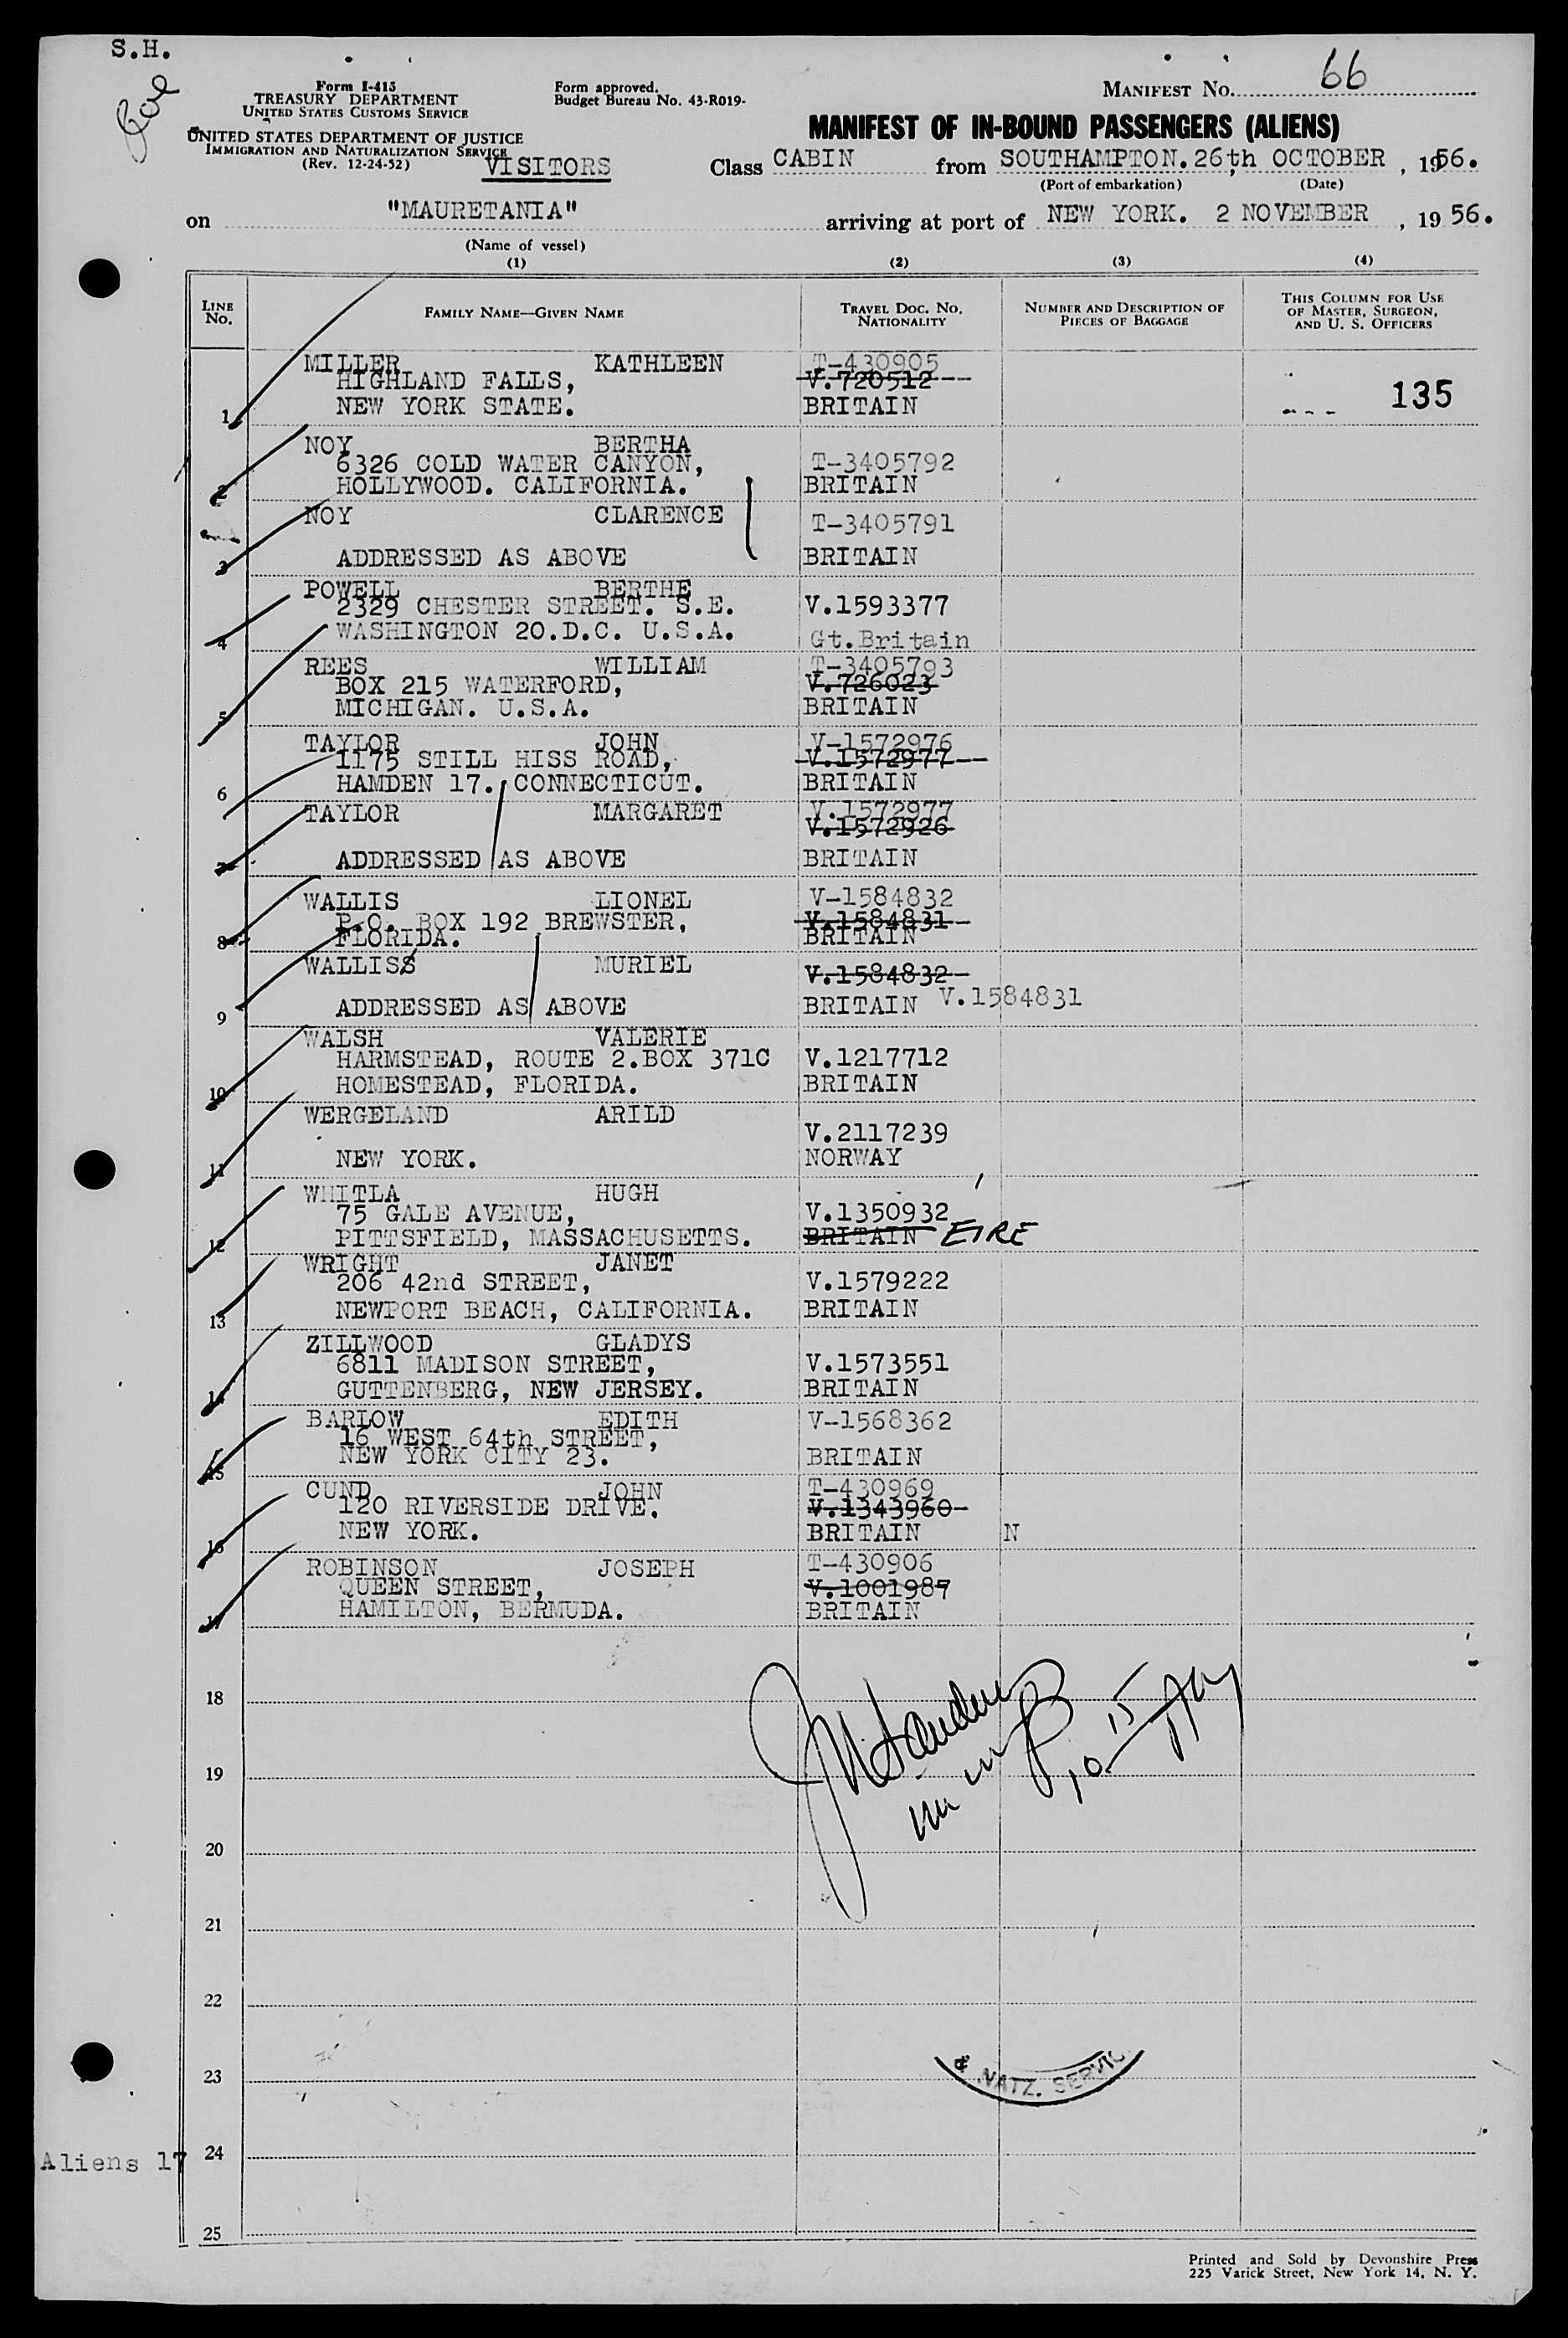 S.H.
Form I-415
TREASURY DEPARTMENT
UNITED STATES CUSTOMS SERVICE
UNITED STATES DEPARTMENT OF JUSTICE
IMMIGRATION AND NATURALIZATION SERVICE
(Rev. 12-24-52)
VISITORS
Form approved.
Budget Bureau No. 43-R019-
MANIFEST NO. 66
MANIFEST OF IN-BOUND PASSENGERS (ALIENS)
Class CABIN from SOUTHAMPTON. 26th OCTOBER, 1956.
(Port of embarkation) (Date)
on "MAURETANIA" arriving at port of NEW YORK. 2 NOVEMBER, 1956.
(Name of vessel)
(1) (2) (3) (4)
LINE NO. FAMILY NAME—GIVEN NAME TRAVEL DOC. NO. NATIONALITY NUMBER AND DESCRIPTION OF PIECES OF BAGGAGE THIS COLUMN FOR USE OF MASTER, SURGEON, AND U. S. OFFICERS
MILLER KATHLEEN T-430905
HIGHLAND FALLS, V.720512
1 NEW YORK STATE. BRITAIN 135
NOY BERTHA
6326 COLD WATER CANYON, T-3405792
2 HOLLYWOOD. CALIFORNIA. BRITAIN
NOY CLARENCE T-3405791
3 ADDRESSED AS ABOVE BRITAIN
POWELL BERTHE
2329 CHESTER STREET. S.E. V.1593377
4 WASHINGTON 20.D.C. U.S.A. Gt.Britain
REES WILLIAM T-3405793
BOX 215 WATERFORD, V.726023
5 MICHIGAN. U.S.A. BRITAIN
TAYLOR JOHN V-1572976
1175 STILL HISS ROAD, V.1572977
6 HAMDEN 17. CONNECTICUT. BRITAIN
TAYLOR MARGARET V.1572977
V.1572926
7 ADDRESSED AS ABOVE BRITAIN
WALLIS LIONEL V-1584832
P.O. BOX 192 BREWSTER, V.1584831
8 FLORIDA. BRITAIN
WALLISS MURIEL V.1584832
9 ADDRESSED AS ABOVE BRITAIN V.1584831
WALSH VALERIE
HARMSTEAD, ROUTE 2.BOX 371C V.1217712
10 HOMESTEAD, FLORIDA. BRITAIN
WERGELAND ARILD
V.2117239
11 NEW YORK. NORWAY
WHITLA HUGH
75 GALE AVENUE, V.1350932
12 PITTSFIELD, MASSACHUSETTS. BRITAIN EIRE
WRIGHT JANET
206 42nd STREET, V.1579222
13 NEWPORT BEACH, CALIFORNIA. BRITAIN
ZILLWOOD GLADYS
6811 MADISON STREET, V.1573551
14 GUTTENBERG, NEW JERSEY. BRITAIN
BARLOW EDITH V-1568362
16 WEST 64th STREET,
15 NEW YORK CITY 23. BRITAIN
CUND JOHN T-430969
120 RIVERSIDE DRIVE. V.1343960
16 NEW YORK. BRITAIN N
ROBINSON JOSEPH T-430906
QUEEN STREET, V.1001987
17 HAMILTON, BERMUDA. BRITAIN
18
19
20
21
22
23
& NATZ. SERVIC
Aliens 17
24
25
Printed and Sold by Devonshire Press
225 Varick Street, New York 14, N. Y.